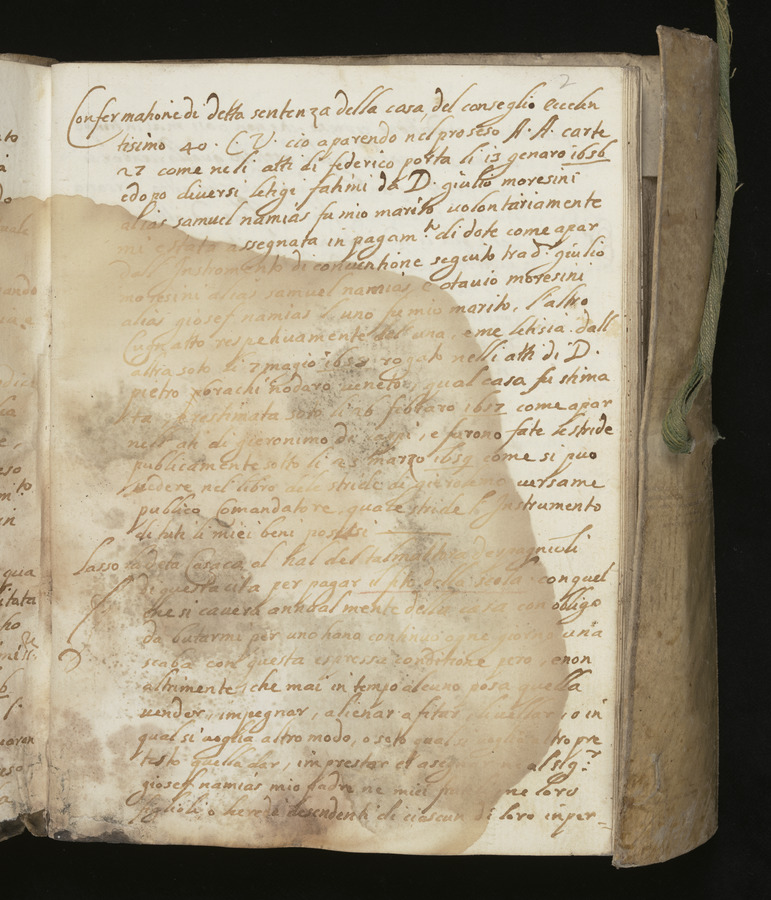 2
Confermatione di detta sentenza della casa, del conseglio eccelen
tisimo 40. C. V. cio aparendo nel proseso A. A. carte
27 come neli atti di federico porta li 13 genaro 1656
e dopo diversi letige fatimi da D. giulio moresini
alias samuel namias fu mio marito volontariamente
mi è stata assegnata in pagam.to di dote come apar
dall' Instromento di conventione seguito tra D. giulio
moresini alias samuel namias e otavio moresini
alias giosef namias l'uno fu mio marito, l'altro
Cugnatto respetivamente dell' una, e me letisia dall
altra soto li 7 magio rogato nelli atti di D.
pietro bracchi nodaro veneto, qual casa fu stima
ta prestimata soto li 26 febraro 1657 come apar
nelli ati di gieronimo di, e furono fate le stride
publicamente sotto li 23 marzo 1659 come si può
vedere nel libro dele stride di gieronimo versame
publico Comandatore, quale stride le Instrumento
di tuti li miei beni postisi
Lasso la deta Casa al Kal del talmud tora de spagnioli
di questa cita per pagar il fito della scola con quel
che si cavera annualmente della casa con obligo
da butarmi per uno hano continuo ogne giorno una
scaba con questa espressa conditione pero, e non
altrimente, che mai in tempo alcuno posa quella
vender, impegnar, alienar afitar, livellar, o in
qual si voglia altro modo, o soto qual si voglia altro pre
testo quella dar, imprestar et asegnar al sig.r
giosef namias mio padre ne miei fratelli ne loro
figlioli o heredi desendenti di ciascun di loro in per=